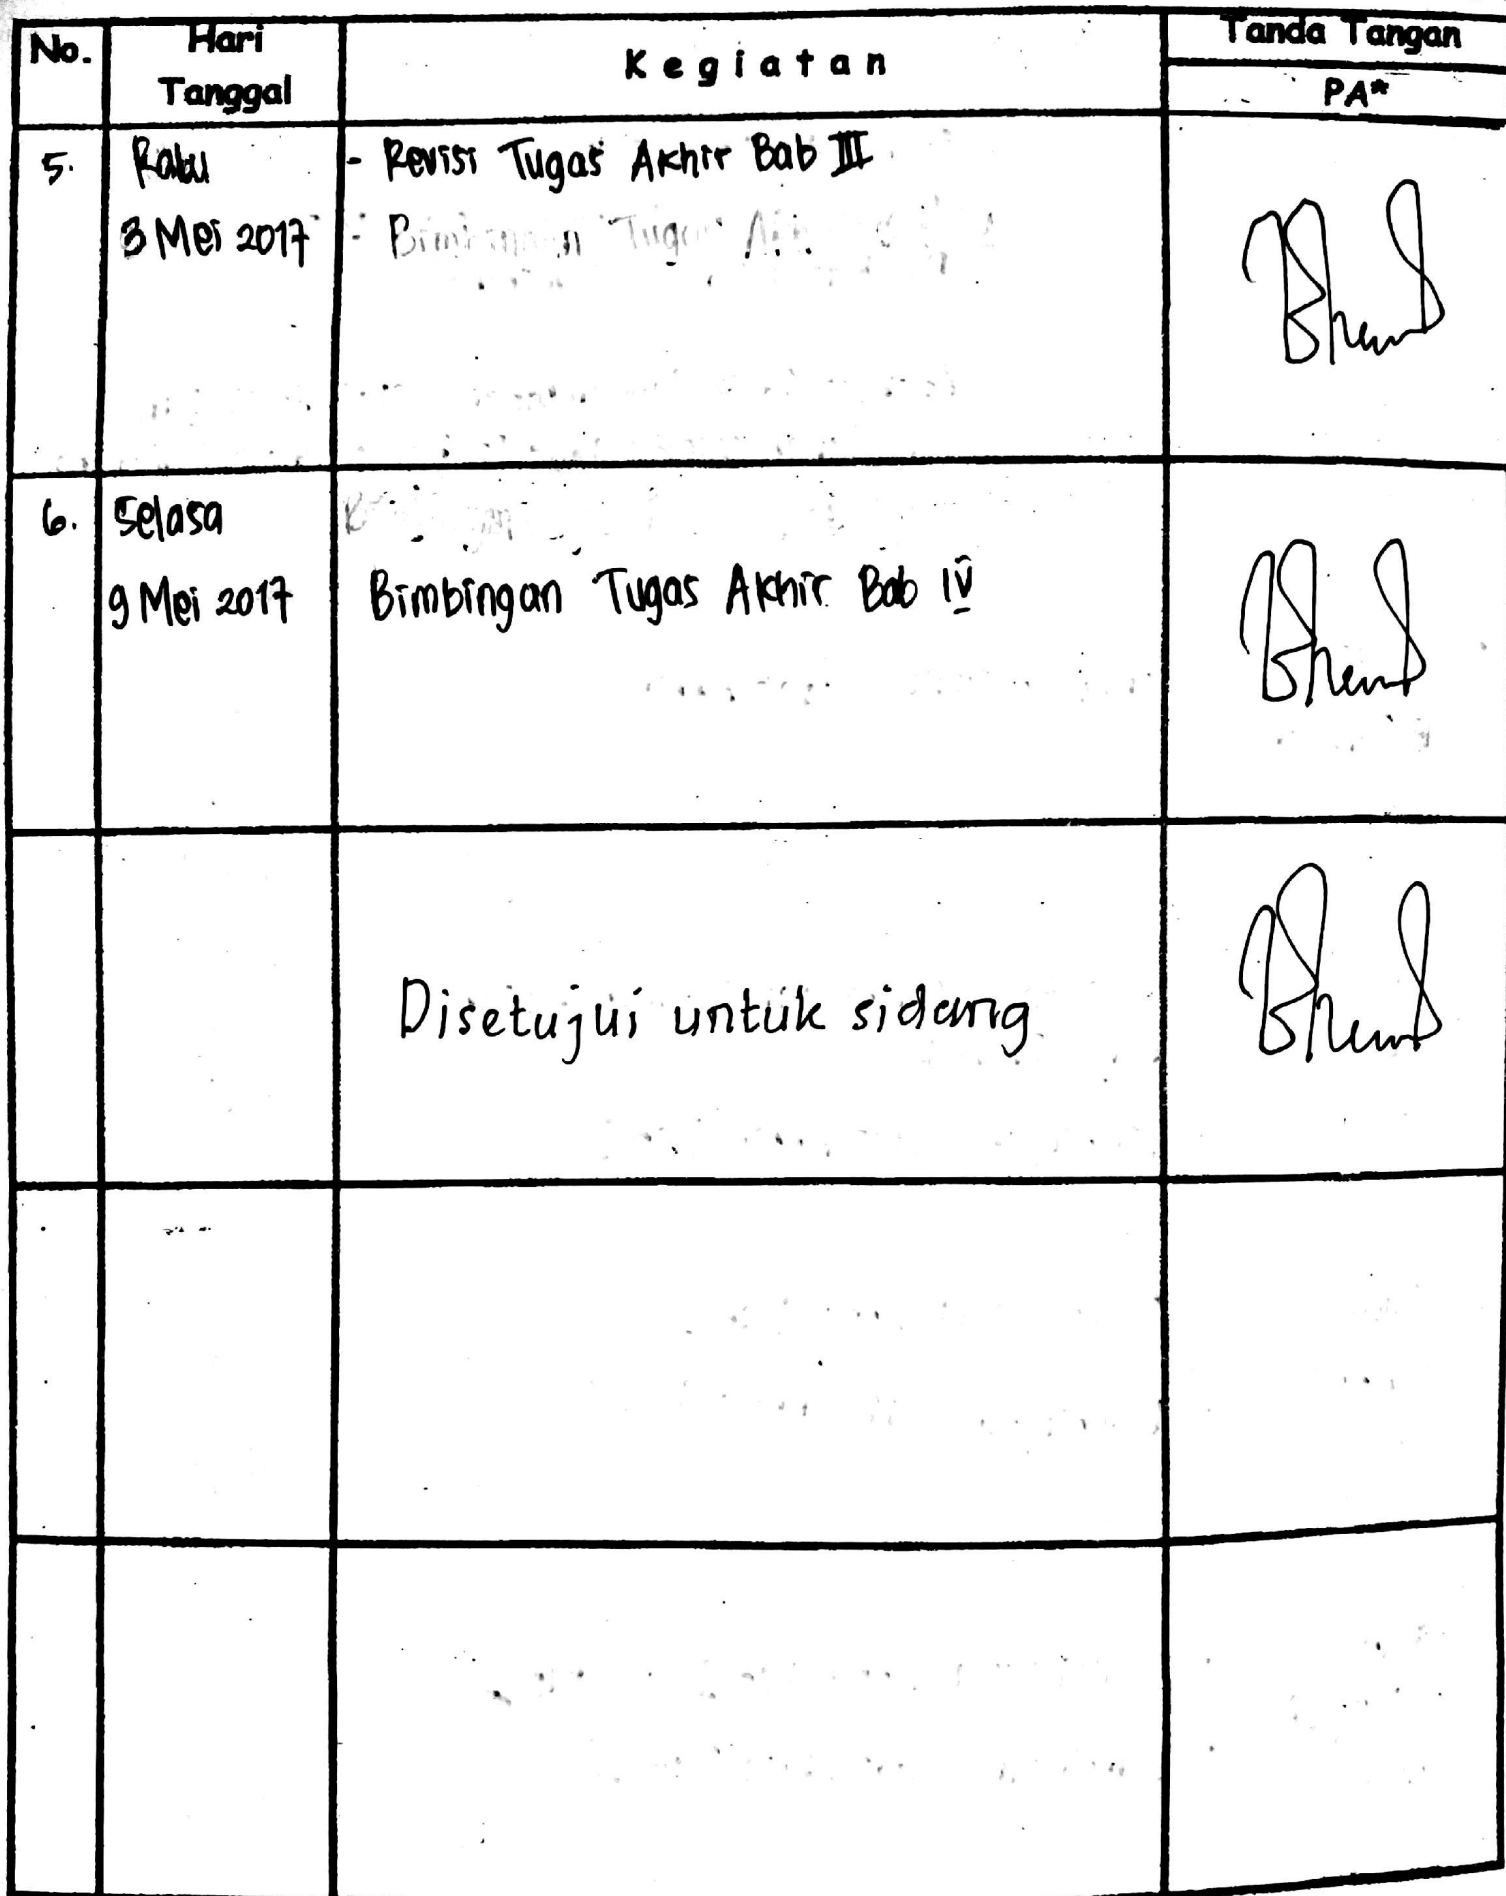 No.
Hari
Tanggal
Kegiatan
Tanda Tangan
PA*
5.
Rabu
3 Mei 2017
- Revisi Tugas Akhir Bab III
- Bimbingan Tugas
6.
Selasa
9 Mei 2017
Bimbingan Tugas Akhir Bab IV
Disetujui untuk sidang